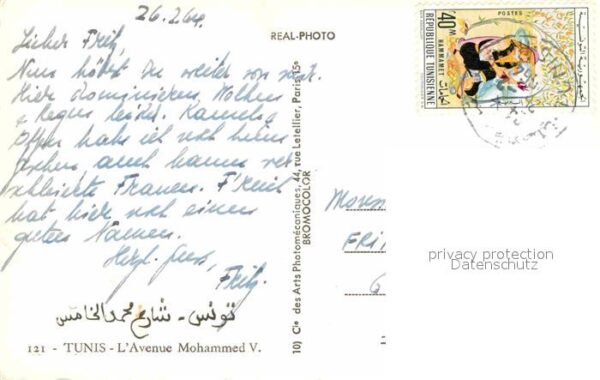 26.2.64.
Lieber Fritz,
Nun hörst du weiter von mir.
Hier dominieren Wolken
+ Regen leider. Kamele +
Affen habe ich noch keine
gesehen auch kaum ver-
schleierte Frauen. F'reich
hat hier noch einen
guten Namen.
Herzl. Gruss,
Fritz.
تونس - شارع محمد الخامس
121 - TUNIS - L'Avenue Mohammed V.
REAL-PHOTO
10) Cie des Arts Photomécaniques, 44, rue Letellier, Paris 15e
BROMOCOLOR
40M
POSTES
HAMMAMET
الحمامات
REPUBLIQUE TUNISIENNE
الجمهورية التونسية
Mons
FRI
6
privacy protection
Datenschutz